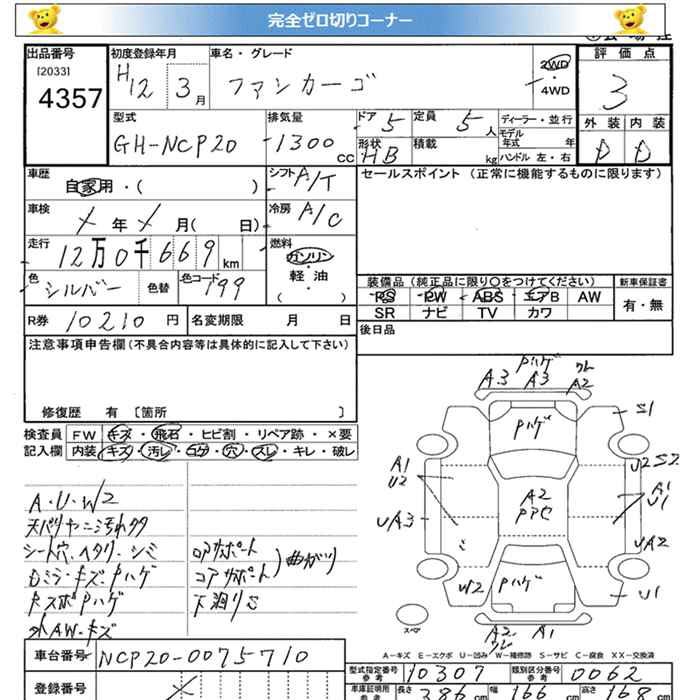 完全ゼロ切りコーナー
出品番号 初度登録年月 車名・グレード 評価点
[2033] H12 3月 ファンカーゴ 2WD 3
4357 4WD
型式 排気量 ドア 定員 ディーラー・並行 外装 内装
GH-NCP20 1300cc 5 5人 モデル年式 年 D D
形状 HB 積載 kg ハンドル 左・右
車歴 自家用・( ) シフト A/T セールスポイント (正常に機能するものに限ります)
車検 年 月( 日) 冷房 A/C
走行 12万0千669km 燃料 ガソリン
軽・油
( )
色 シルバー 色替 色コード 199
装備品 (純正品に限り○をつけてください) 新車保証書
PS PW ABS エアB AW 有・無
SR ナビ TV カワ
R券 10210円 名変期限 月 日 後日品
注意事項申告欄(不具合内容等は具体的に記入して下さい)
修復歴 有 [箇所 ]
検査員 FW キズ・飛石・ヒビ割・リペア跡・×要
記入欄 内装 キズ・汚レ・コゲ・穴・スレ・キレ・破レ
A・U・W2
天バリヤニ汚れ多
シート穴・ヘタリ・シミ
Dミラーキズ・Pハゲ
FスポPハゲ
外AW・キズ
ロアサポート
コアサポート
曲がり
下廻りS
A3 Pハゲ A3 A2
Pハゲ
S1
A1 U2
U2 S2
A1 U1
A2
UA3
UA2
W2 Pハゲ
U1
スペア
A2 A1
A-キズ E-エクボ U-凹み W-補修跡 S-サビ C-腐食 XX-交換済
車台番号 NCP20-0075710
型式指定番号 参考 10307 類別区分番号 参考 0062
登録番号
車庫証明用 参考 長さ 386cm 幅 166cm 高さ 168cm